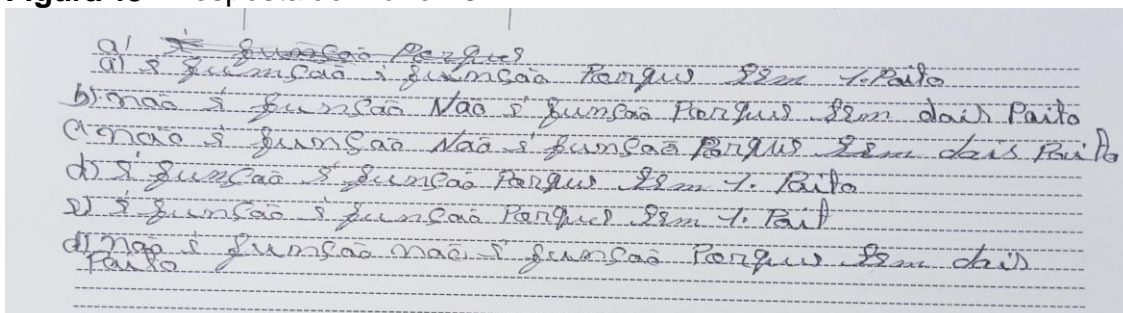 a) É função Porque
a) é fumção é fumção Porque Tem 1. Paito
b) não é função Não é função Porque Tem dois Paito
c) não é função Não é função Porque Tem dois Paito
d) É função É função Porque Tem 1. Paito
e) É função é função Porque Tem 1. Pait
d) não é fumção não é função Porque Tem dois
Paito